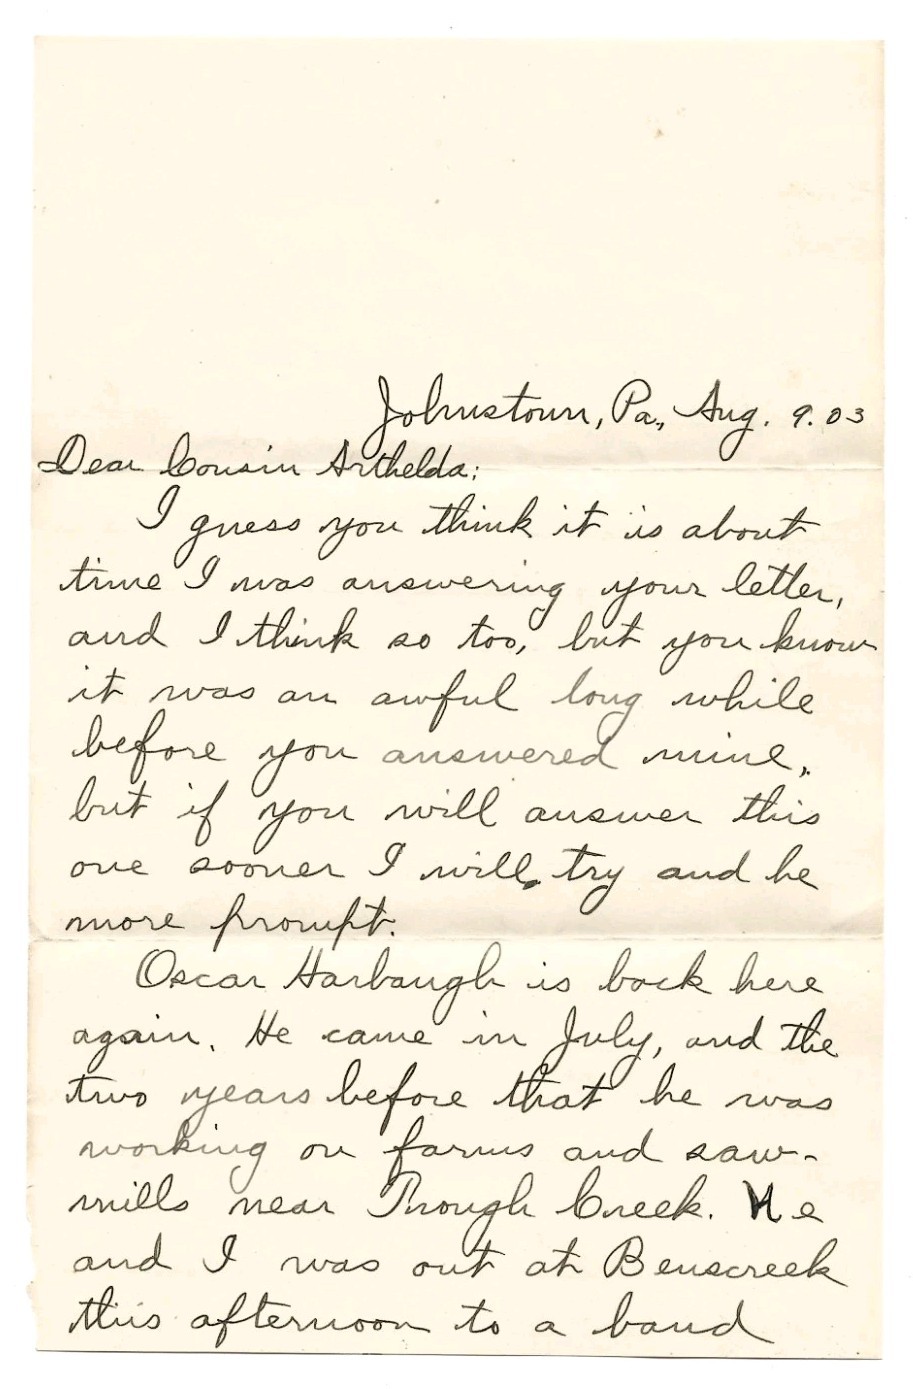 Johnstown, Pa., Aug. 9. 03
Dear Cousin Arthelda:
I guess you think it is about
time I was answering your letter,
and I think so too, but you know
it was an awful long while
before you answered mine,
but if you will answer this
one sooner I will try and be
more prompt.
Oscar Harbaugh is back here
again. He came in July, and the
two years before that he was
working on farms and saw-
mills near Trough Creek. He
and I was out at Benscreek
this afternoon to a band